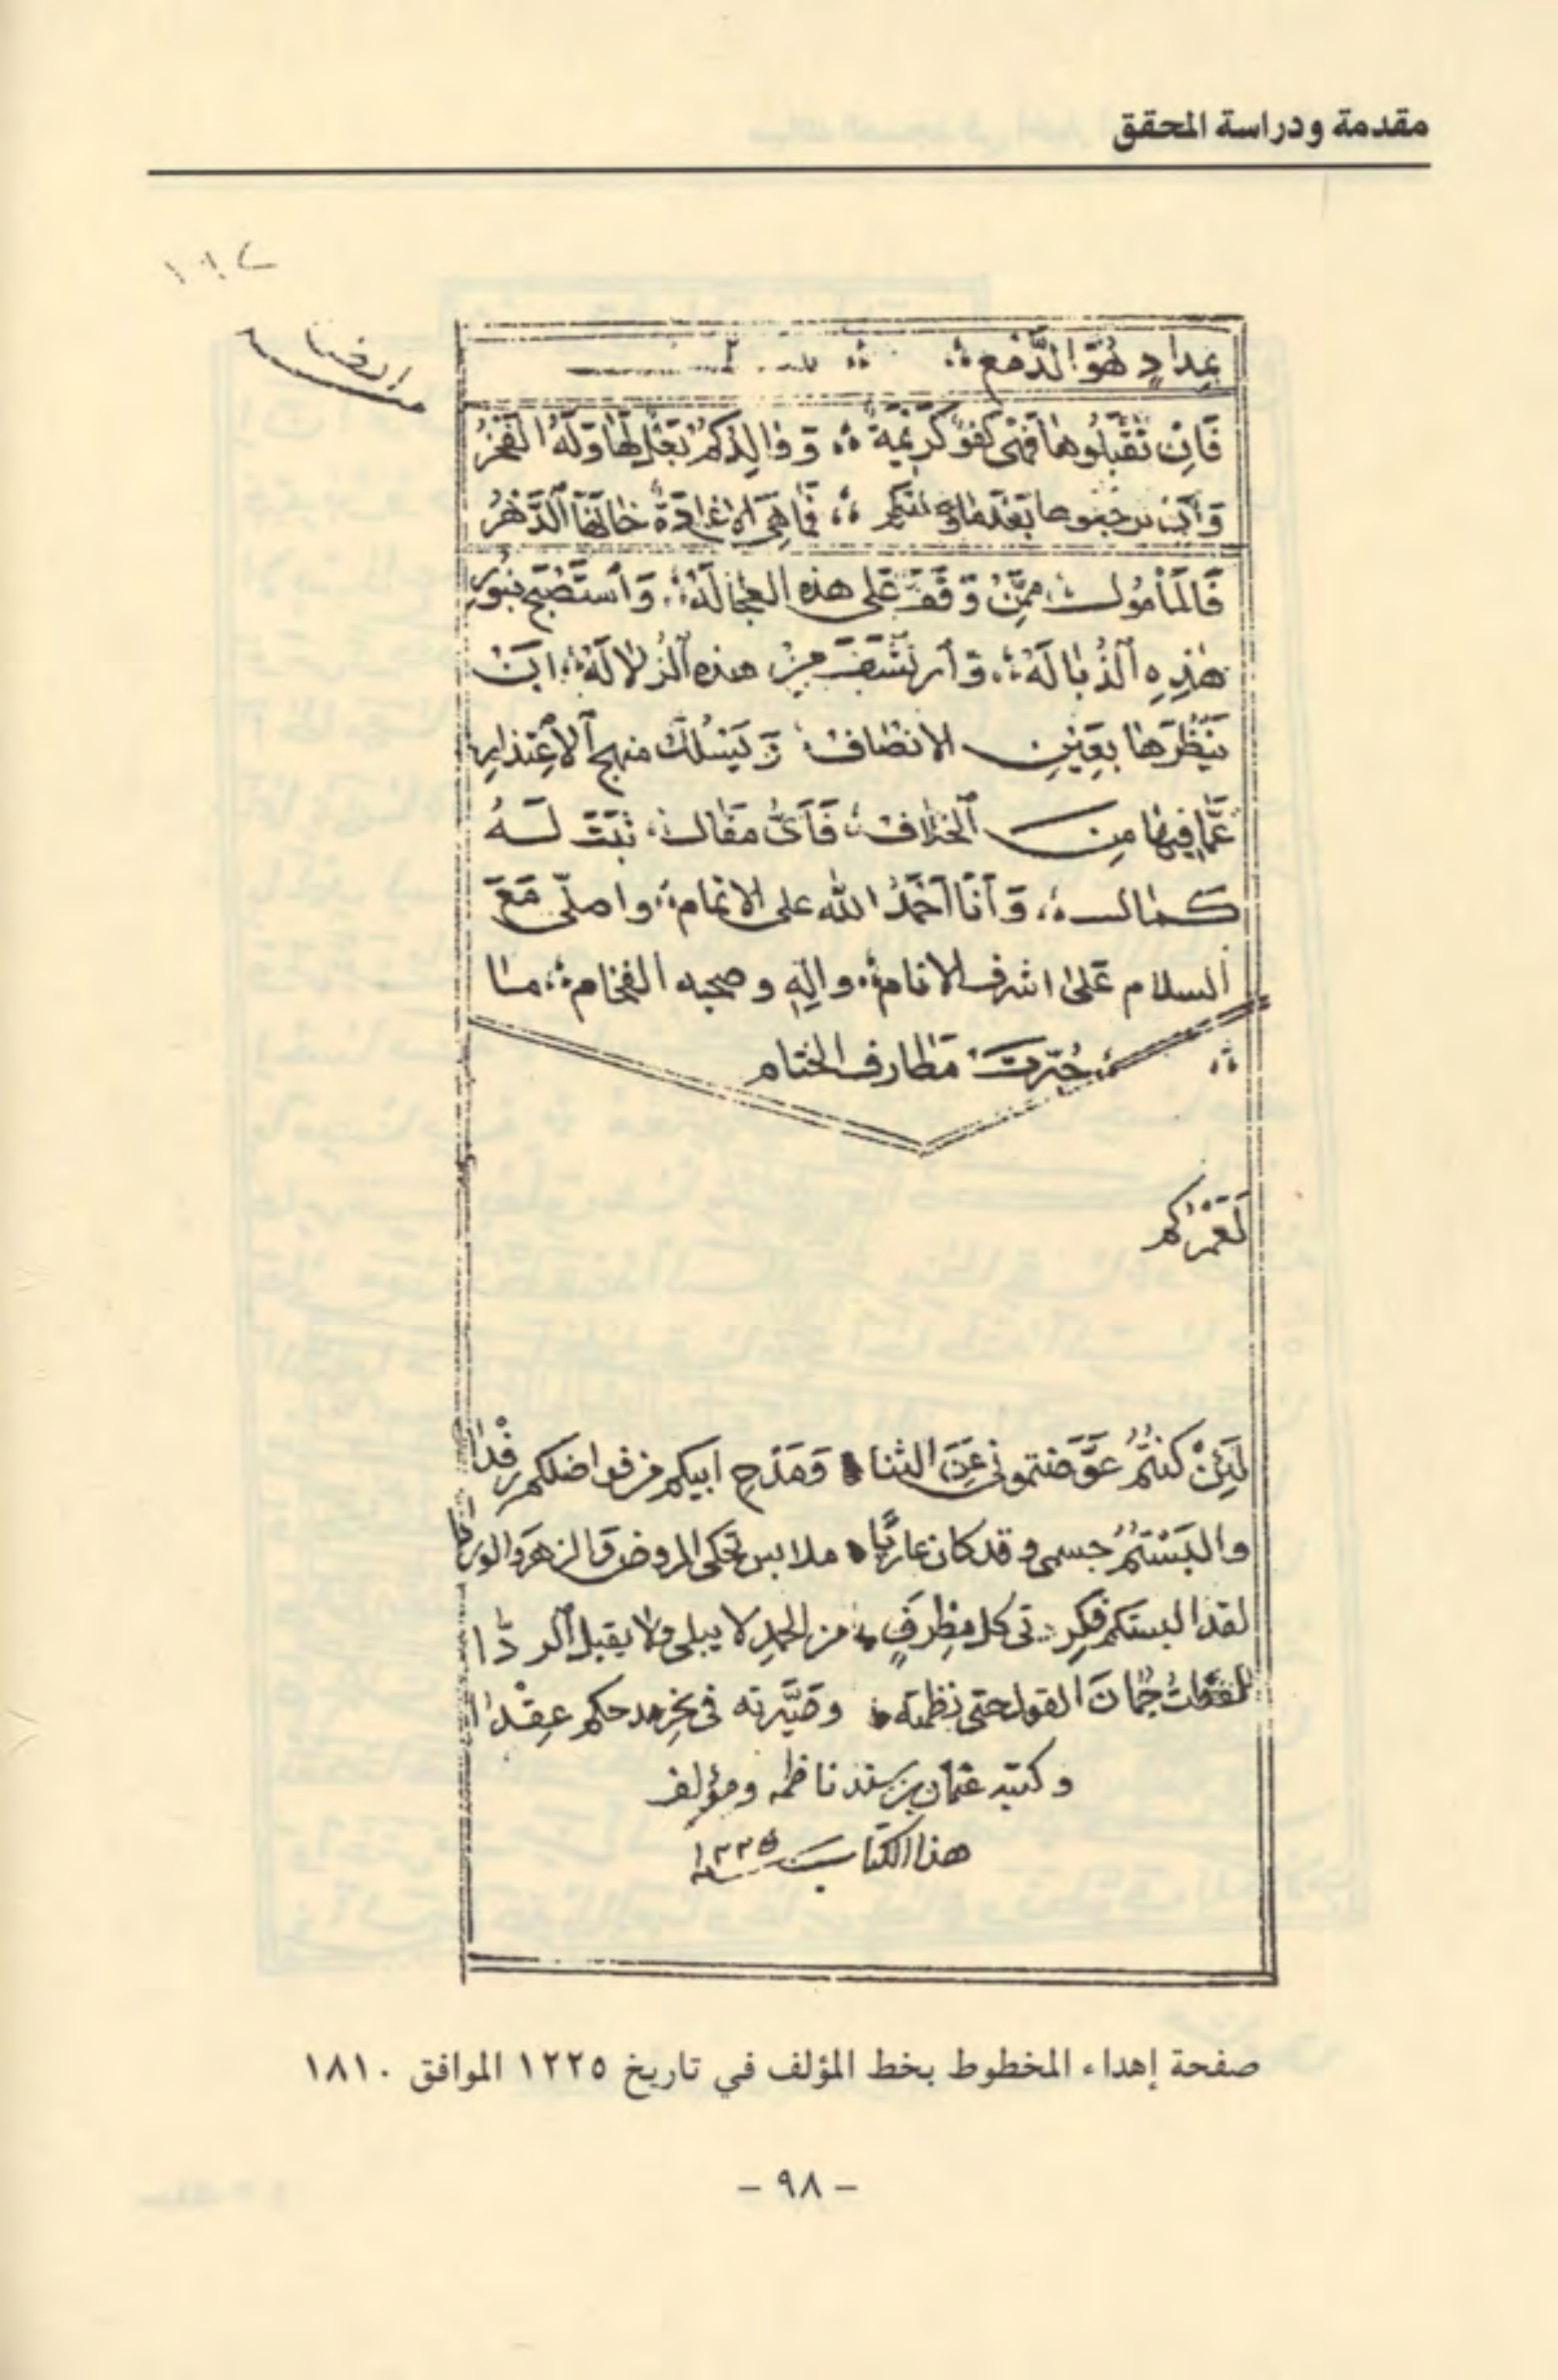 مقدمة ودراسة المحقق
بِمِدادٍ هُوَ الدَّمْعِ
فَاِنْ تَقْبَلُوهَا فَهْيَ كَفْوٌ كَرِيْمَةٌ وَوَالِدُكُمْ بَعْلٌ لَهَا وَلَهُ الْفَخْرُ
فَمَا هِيَ اِلا غَادَةٌ خَانَهَا الدَّهْرُ
فَالْمَأْمُولُ مِمَّنْ وَقَفَ عَلى هذه العُجَالَةِ، وَاسْتَصْبَحَ بِنُورِ
هٰذِهِ الذُّبَالَةِ، وَارْتَشَفَ مِنْ هذه الزُّلالَةِ، اَنْ
يَنْظُرَهَا بِعَيْنِ الانصَاف وَيَسْلُكَ منهج الاِعْتِذارِ
عَمَّا فِيهَا مِنَ الخلاف، فَاَىُّ مَقَال، ثَبَتَ لَهُ
كمال، وَاَنَا اَحْمَدُ الله على الاتمام، واصلّى مَعَ
السلام عَلَى اشرف الانام، والِهِ وصحبه الفخام، ما
حُبِّرَتْ مَطارف الختام
لَعَمْرُكُم
لَئِنْ كُنْتُمُ عَوَّضتمونى عَنِ الثنا وَمَدْحِ ابيكم من فواضلكم رِفْدَا
والبَسْتُمُ جسمى وقد كان عاريًا ملابس تحكى الروض وَالزهرَ والوردا
لقد البستكم فِكرتى كل مِطرَفٍ من الحمدِ لا يبلى ولا يقبل الردّا
جُمَانَ القول حتى نظمته وصَيَّرته فى نحرِ مدحكم عِقْدَا
وكتبه عثمان بن سند ناظمه ومؤلف
هذا الكتاب سنة ١٢٢٥
صفحة إهداء المخطوط بخط المؤلف في تاريخ ١٢٢٥ الموافق ١٨١٠
- ٩٨ -